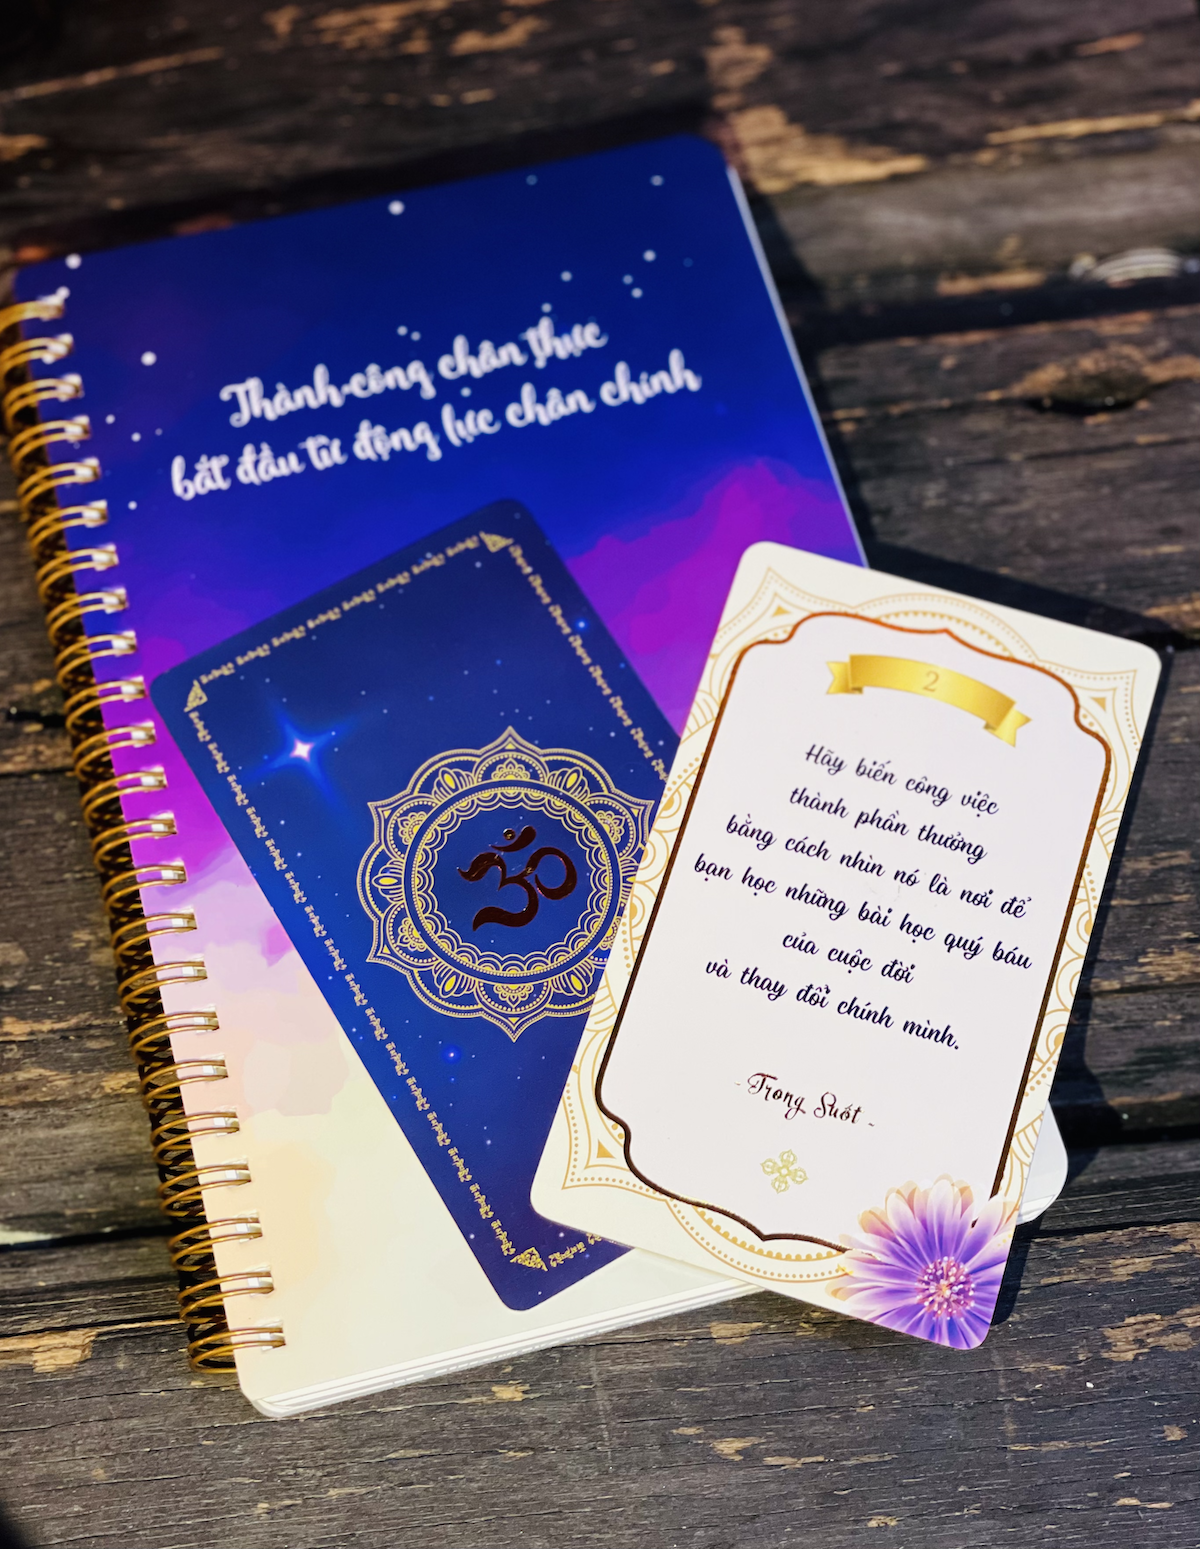 Thành công chân thực
bắt đầu từ động lực chân chính
ॐ
2
Hãy biến công việc
thành phần thưởng
bằng cách nhìn nó là nơi để
bạn học những bài học quý báu
của cuộc đời
và thay đổi chính mình.
- Trong Suốt -